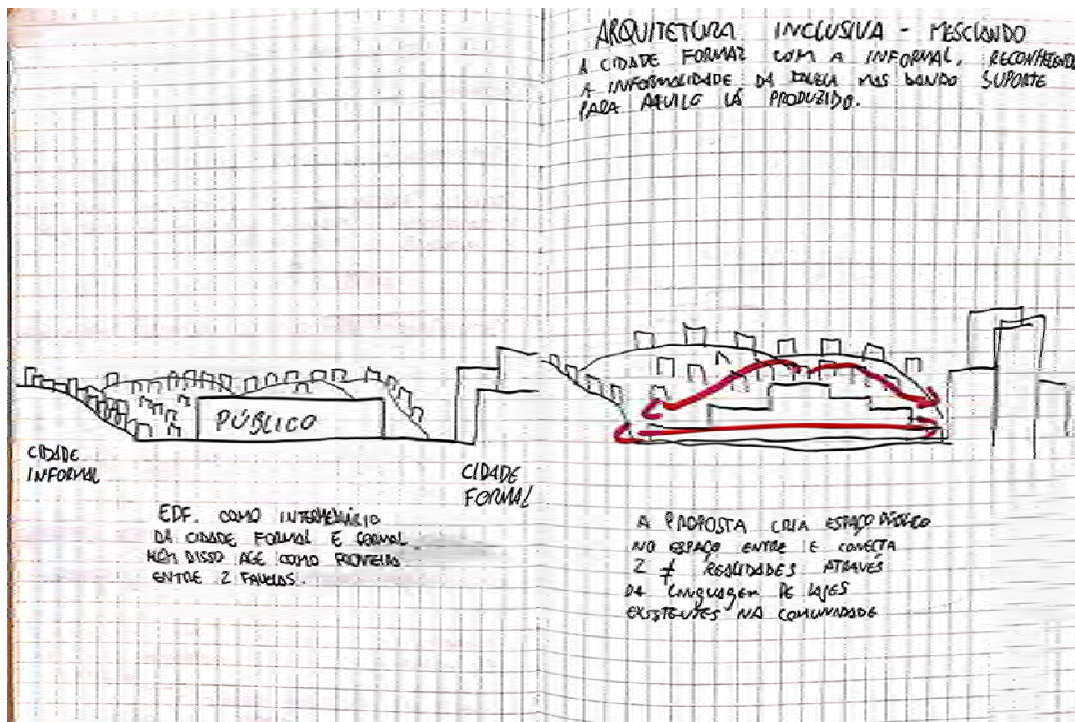 ARQUITETURA INCLUSIVA - MESCLANDO
A CIDADE FORMAL COM A INFORMAL, RECONHECENDO
A INFORMALIDADE DA FAVELA MAS DANDO SUPORTE
PARA AQUILO LÁ PRODUZIDO.
PÚBLICO
CIDADE
INFORMAL
CIDADE
FORMAL
EDF. COMO INTERMEDIÁRIO
DA CIDADE FORMAL E
ALÉM DISSO AGE COMO FRONTEIRA
ENTRE 2 FAVELAS.
A PROPOSTA CRIA ESPAÇO PÚBLICO
NO ESPAÇO ENTRE E CONECTA
2 ≠ REALIDADES ATRAVÉS
DA LINGUAGEM DE LAJES
EXISTENTES NA COMUNIDADE